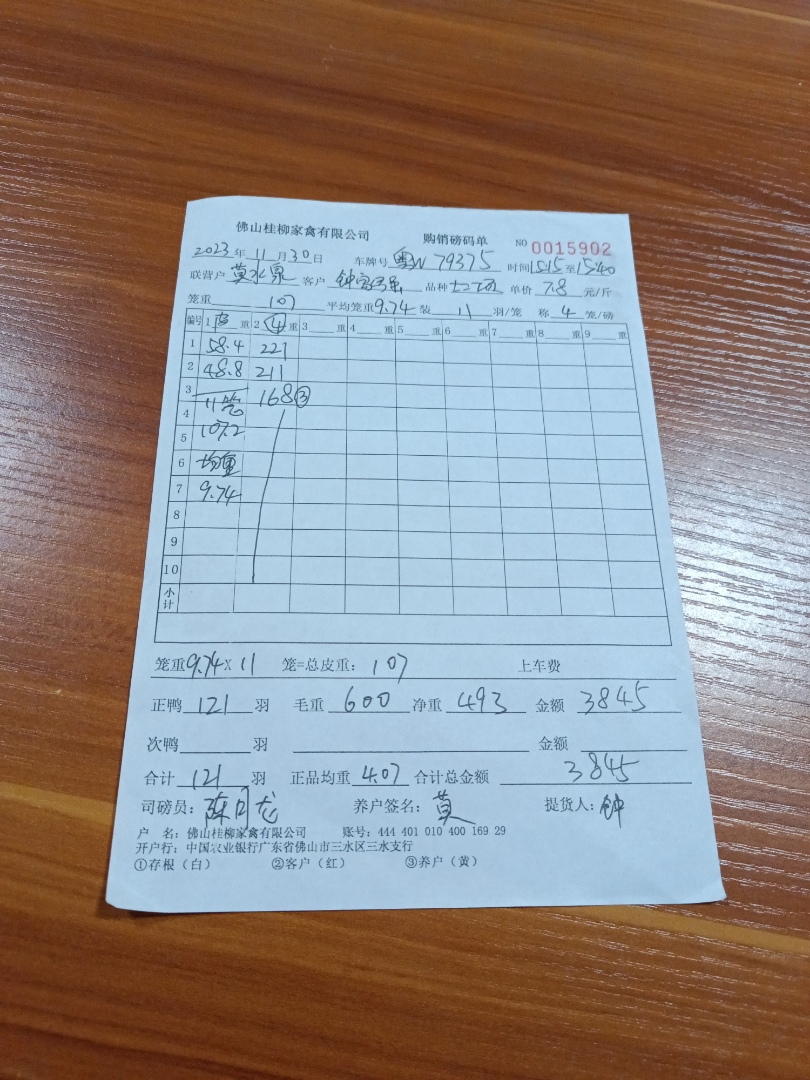 佛山桂柳家禽有限公司 购销磅码单 NO 0015902
2023年11月30日 车牌号 粤W79375 时间15:15至15:40
联营户 莫水泉 客户 钟 品种 单价 7.8 元/斤
笼重 107 平均笼重 9.74 装 11 羽/笼 称 4 笼/磅
编号 1 重 2 ④ 重 3 重 4 重 5 重 6 重 7 重 8 重 9 重
1 58.4 221
2 48.8 211
3 168③
4 11笼
5 107.2
6 均重
7 9.74
8
9
10
小计
笼重9.74X 11 笼=总皮重: 107 上车费
正鸭 121 羽 毛重 600 净重 493 金额 3845
次鸭 羽 金额
合计 121 羽 正品均重 4.07 合计总金额 3845
司磅员: 陈月龙 养户签名: 莫 提货人: 钟
户 名: 佛山桂柳家禽有限公司 账号: 444 401 010 400 169 29
开户行: 中国农业银行广东省佛山市三水区三水支行
①存根(白) ②客户(红) ③养户(黄)